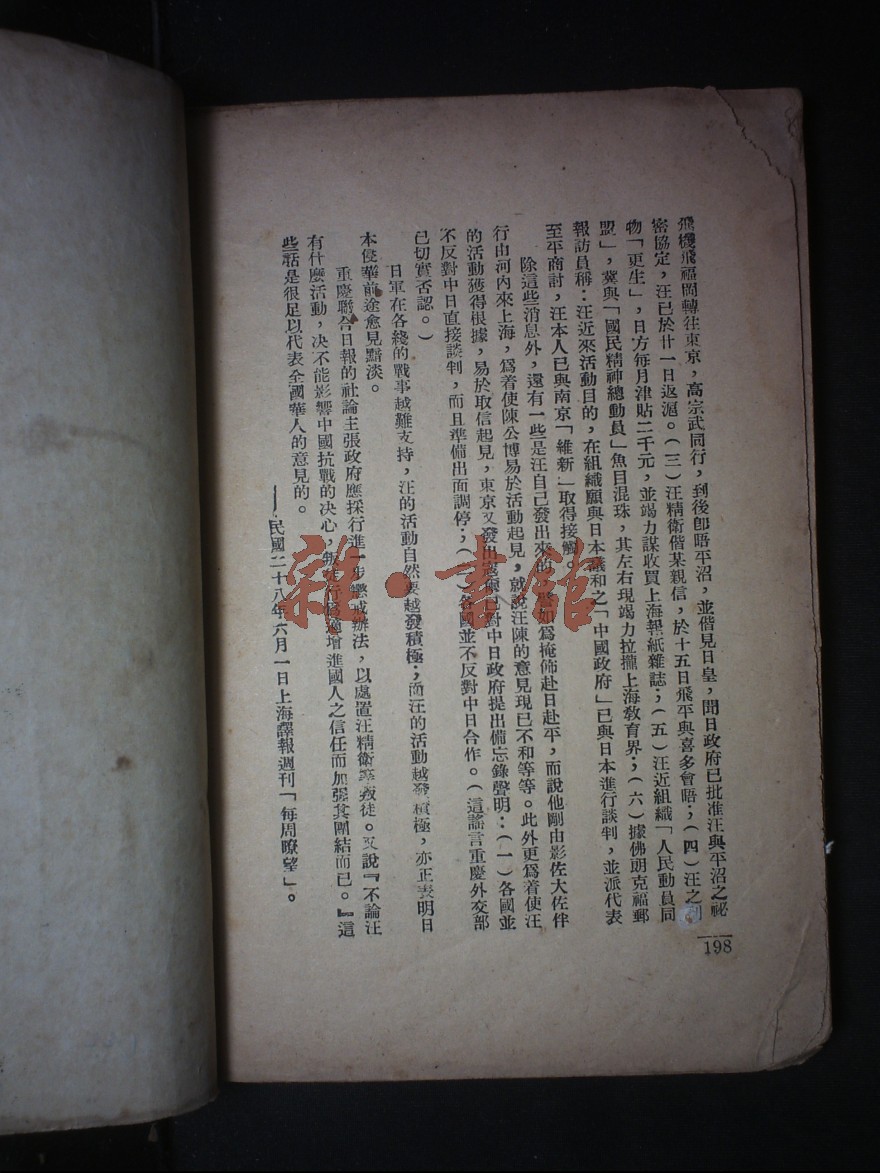 飛機飛福岡轉往東京，高宗武同行，到後卽晤平沼，並偕見日皇，聞日政府已批准汪與平沼之祕
密協定，汪已於廿一日返滬。（三）汪精衛偕某親信，於十五日飛平與喜多會晤；（四）汪之刊
物「更生」，日方每月津貼二千元，並竭力謀收買上海報紙雜誌；（五）汪近組織「人民動員同
盟」，冀與「國民精神總動員」魚目混珠，其左右現竭力拉攏上海敎育界；（六）據佛朗克福郵
報訪員稱：汪近來活動目的，在組織願與日本議和之「中國政府」已與日本進行談判，並派代表
至平商討，汪本人已與南京「維新」取得接觸。
除這些消息外，還有一些是汪自己發出來的，譬如爲掩佈赴日赴平，而說他剛由影佐大佐伴
行由河內來上海，爲着使陳公博易於活動起見，就說汪陳的意見現已不和等等。此外更爲着使汪
的活動獲得根據，易於取信起見，東京又發出對中日政府提出備忘錄聲明：（一）各國並
不反對中日直接談判，而且準備出面調停；（二）各國並不反對中日合作。（這謠言重慶外交部
已切實否認。）
日軍在各綫的戰事越難支持，汪的活動自然要越發積極；而汪的活動越發積極，亦正表明日
本侵華前途愈見黯淡。
重慶聯合日報的社論主張政府應採行進一步懲戒辦法，以處置汪精衛等叛徒。又說『不論汪
有什麼活動，決不能影響中國抗戰的決心，叛徒行爲適增進國人之信任而加强其團結而已。』這
些話是很足以代表全國華人的意見的。
——民國二十八年六月一日上海譯報週刊「每周瞭望」。
198
雜·書館